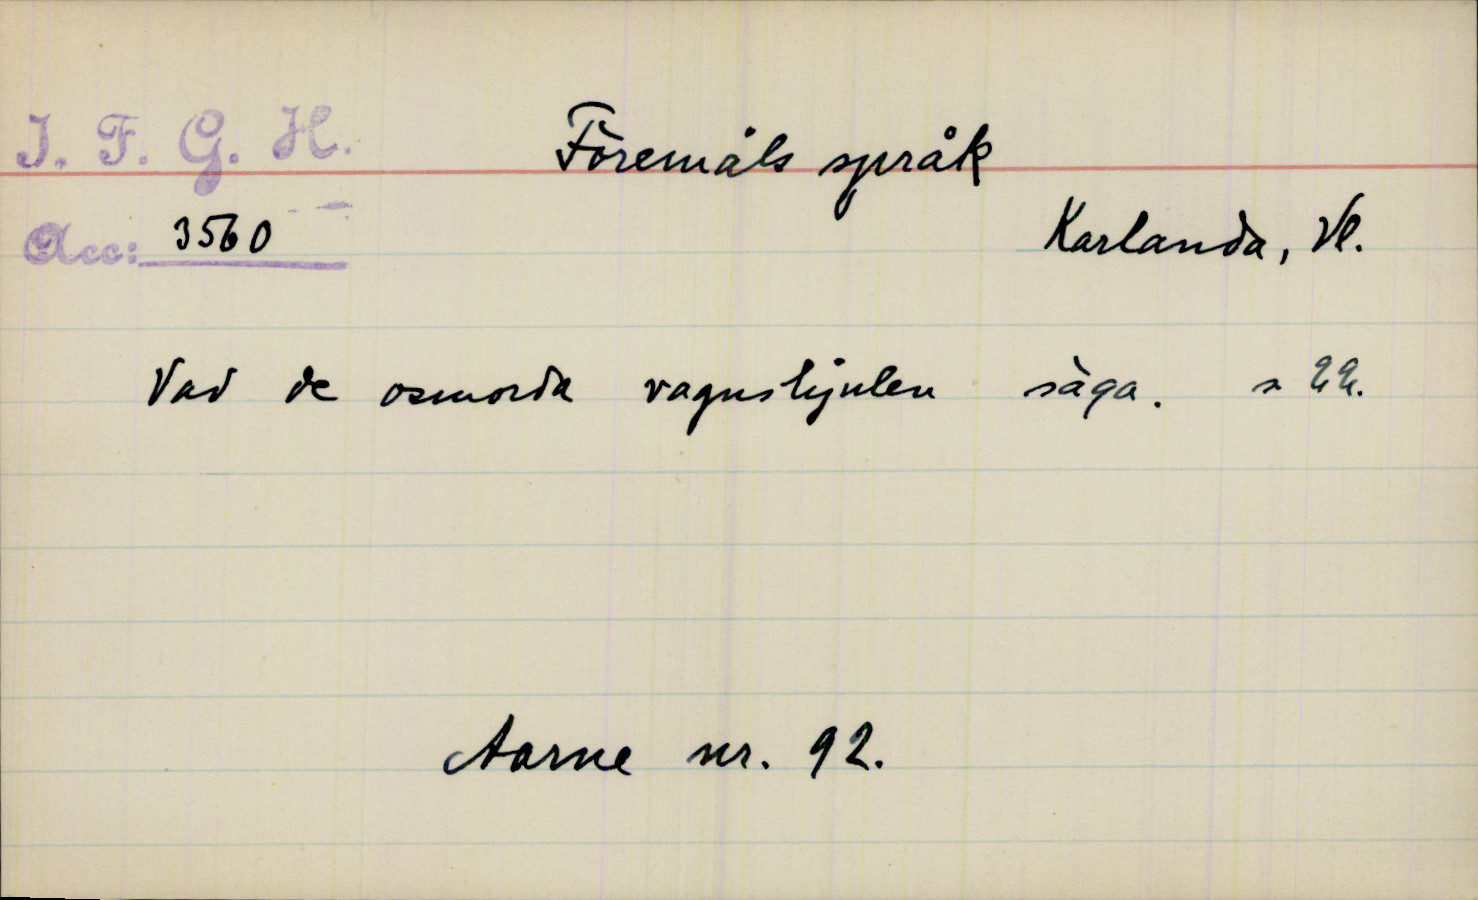 I. F. G. H.
Föremåls språk
Acc: 3560
Karlanda, Vl.
Vad de osmorda vagnshjulen säga. s 22.
Aarne nr. 92.